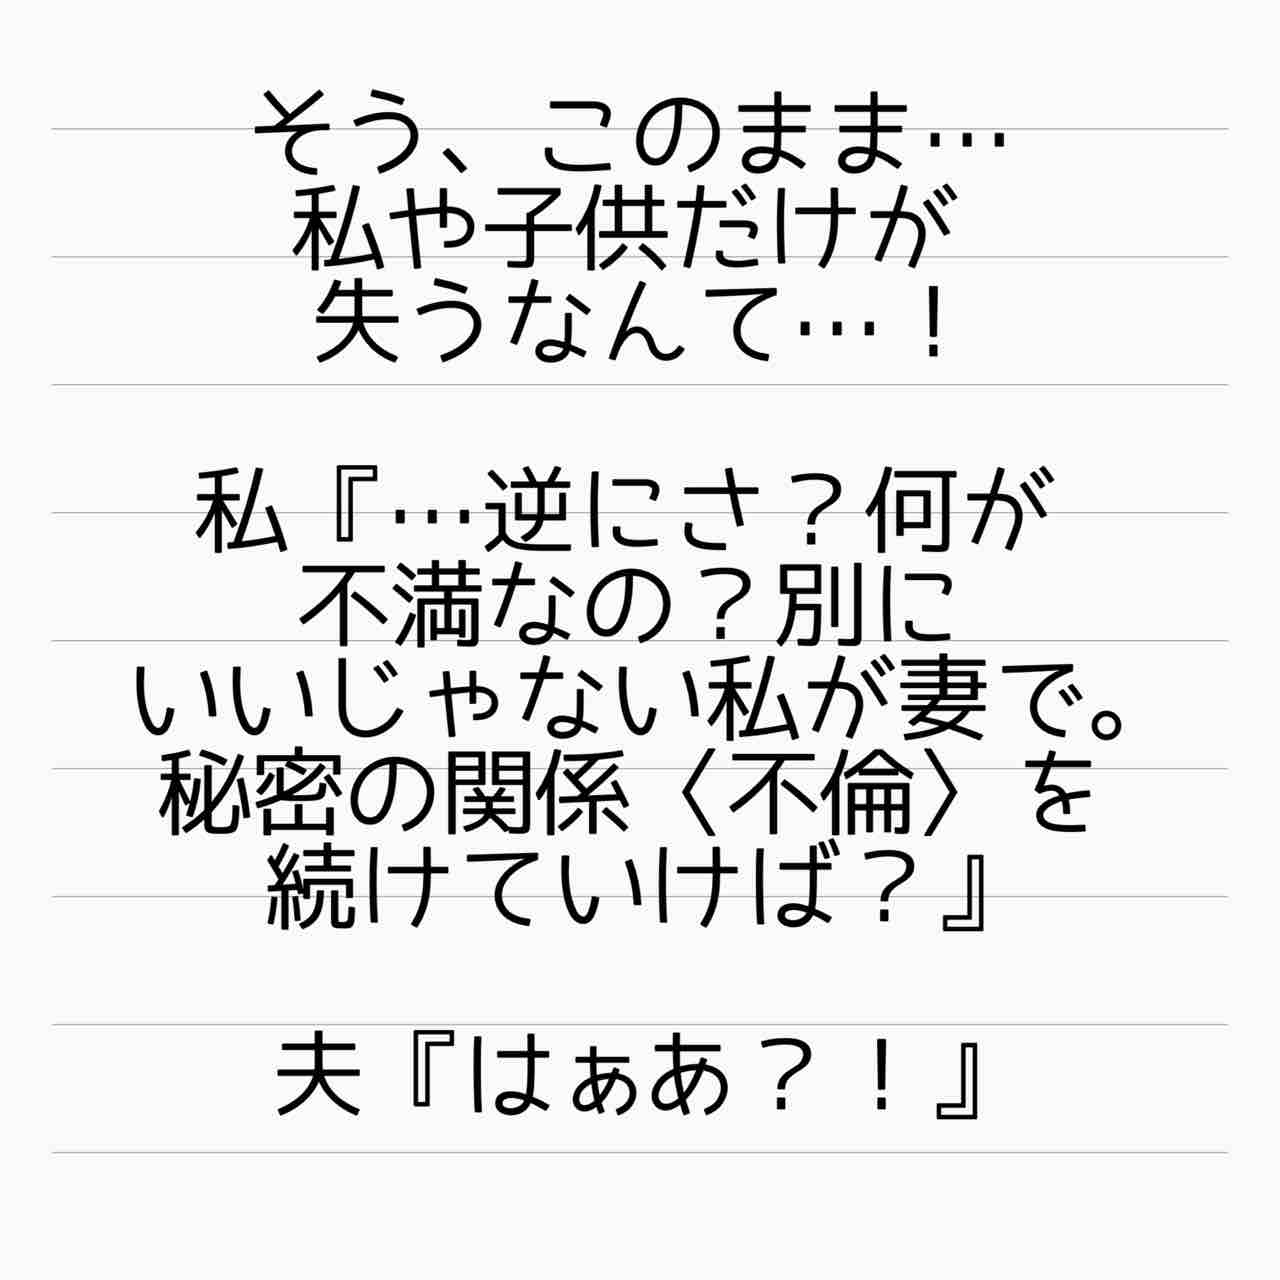 そう、このまま…
私や子供だけが
失うなんて…！
私『…逆にさ？何が
不満なの？別に
いいじゃない私が妻で。
秘密の関係〈不倫〉を
続けていけば？』
夫『はぁあ？！』